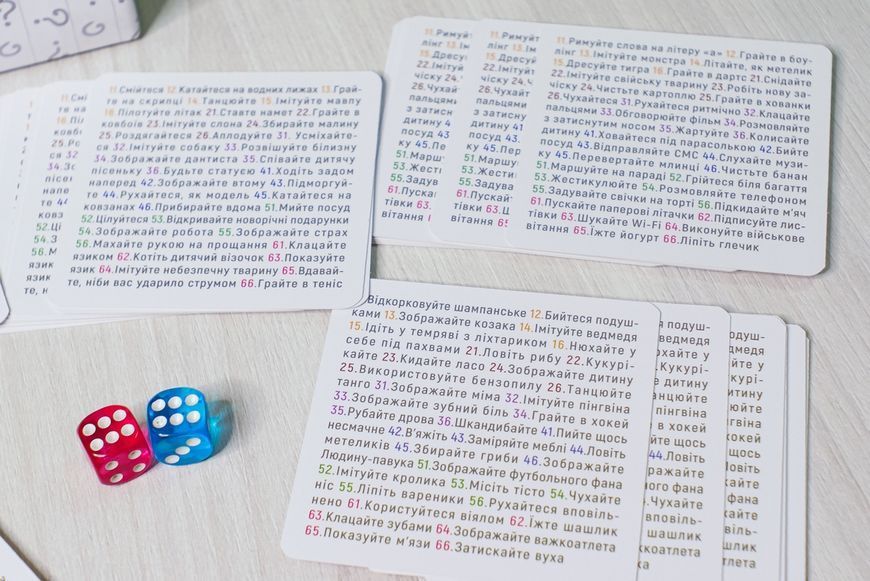 11.Смійтеся 12.Катайтеся на водних лижах 13.Грай-
те на скрипці 14.Танцюйте 15.Імітуйте мавпу
16.Пілотуйте літак 21.Ставте намет 22.Грайте в
ковбоїв 23.Імітуйте слона 24.Збирайте малину
25.Роздягайтеся 26.Аплодуйте 31. Усміхайте-
ся 32.Імітуйте собаку 33.Розвішуйте білизну
34.Зображайте дантиста 35.Співайте дитячу
пісеньку 36.Будьте статуєю 41.Ходіть задом
наперед 42.Зображайте втому 43.Підморгуй-
те 44.Рухайтеся, як модель 45.Катайтеся на
ковзанах 46.Прибирайте вдома 51.Мийте посуд
52.Цілуйтеся 53.Відкривайте новорічні подарунки
54.Зображайте робота 55.Зображайте страх
56.Махайте рукою на прощання 61.Клацайте
язиком 62.Котіть дитячий візочок 63.Показуйте
язик 64.Імітуйте небезпечну тварину 65.Вдавай-
те, ніби вас ударило струмом 66.Грайте в теніс
11.Римуйте слова на літеру «а» 12.Грайте в боу-
лінг 13.Імітуйте монстра 14.Літайте, як метелик
15.Дресуйте тигра 16.Грайте в дартс 21.Снідайте
22.Імітуйте свійську тварину 23.Робіть нову за-
чіску 24.Чистьте картоплю 25.Грайте в хованки
26.Чухайтеся 31.Рухайтеся ритмічно 32.Клацайте
пальцями 33.Обговорюйте фільм 34.Розмовляйте
з затиснутим носом 35.Жартуйте 36.Колисайте
дитину 41.Ховайтеся під парасолькою 42.Бийте
посуд 43.Відправляйте СМС 44.Слухайте музи-
ку 45.Перевертайте млинці 46.Чистьте банан
51.Маршуйте на параді 52.Грійтеся біля багаття
53.Жестикулюйте 54.Розмовляйте телефоном
55.Задувайте свічки на торті 56.Підкидайте м'яч
61.Пускайте паперові літачки 62.Підписуйте лис-
тівки 63.Шукайте Wi-Fi 64.Виконуйте військове
вітання 65.Їжте йогурт 66.Ліпіть глечик
Відкорковуйте шампанське 12.Бийтеся подуш-
ками 13.Зображайте козака 14.Імітуйте ведмедя
15.Ідіть у темряві з ліхтариком 16.Нюхайте у
себе під пахвами 21.Ловіть рибу 22.Кукурі-
кайте 23.Кидайте ласо 24.Зображайте дитину
25.Використовуйте бензопилу 26.Танцюйте
танго 31.Зображайте міма 32.Імітуйте пінгвіна
33.Зображайте зубний біль 34.Грайте в хокей
35.Рубайте дрова 36.Шкандибайте 41.Пийте щось
несмачне 42.В'яжіть 43.Заміряйте меблі 44.Ловіть
метеликів 45.Збирайте гриби 46.Зображайте
Людину-павука 51.Зображайте футбольного фана
52.Імітуйте кролика 53.Місіть тісто 54.Чухайте
ніс 55.Ліпіть вареники 56.Рухайтеся вповіль-
нено 61.Користуйтеся віялом 62.Їжте шашлик
63.Клацайте зубами 64.Зображайте важкоатлета
65.Показуйте м'язи 66.Затискайте вуха